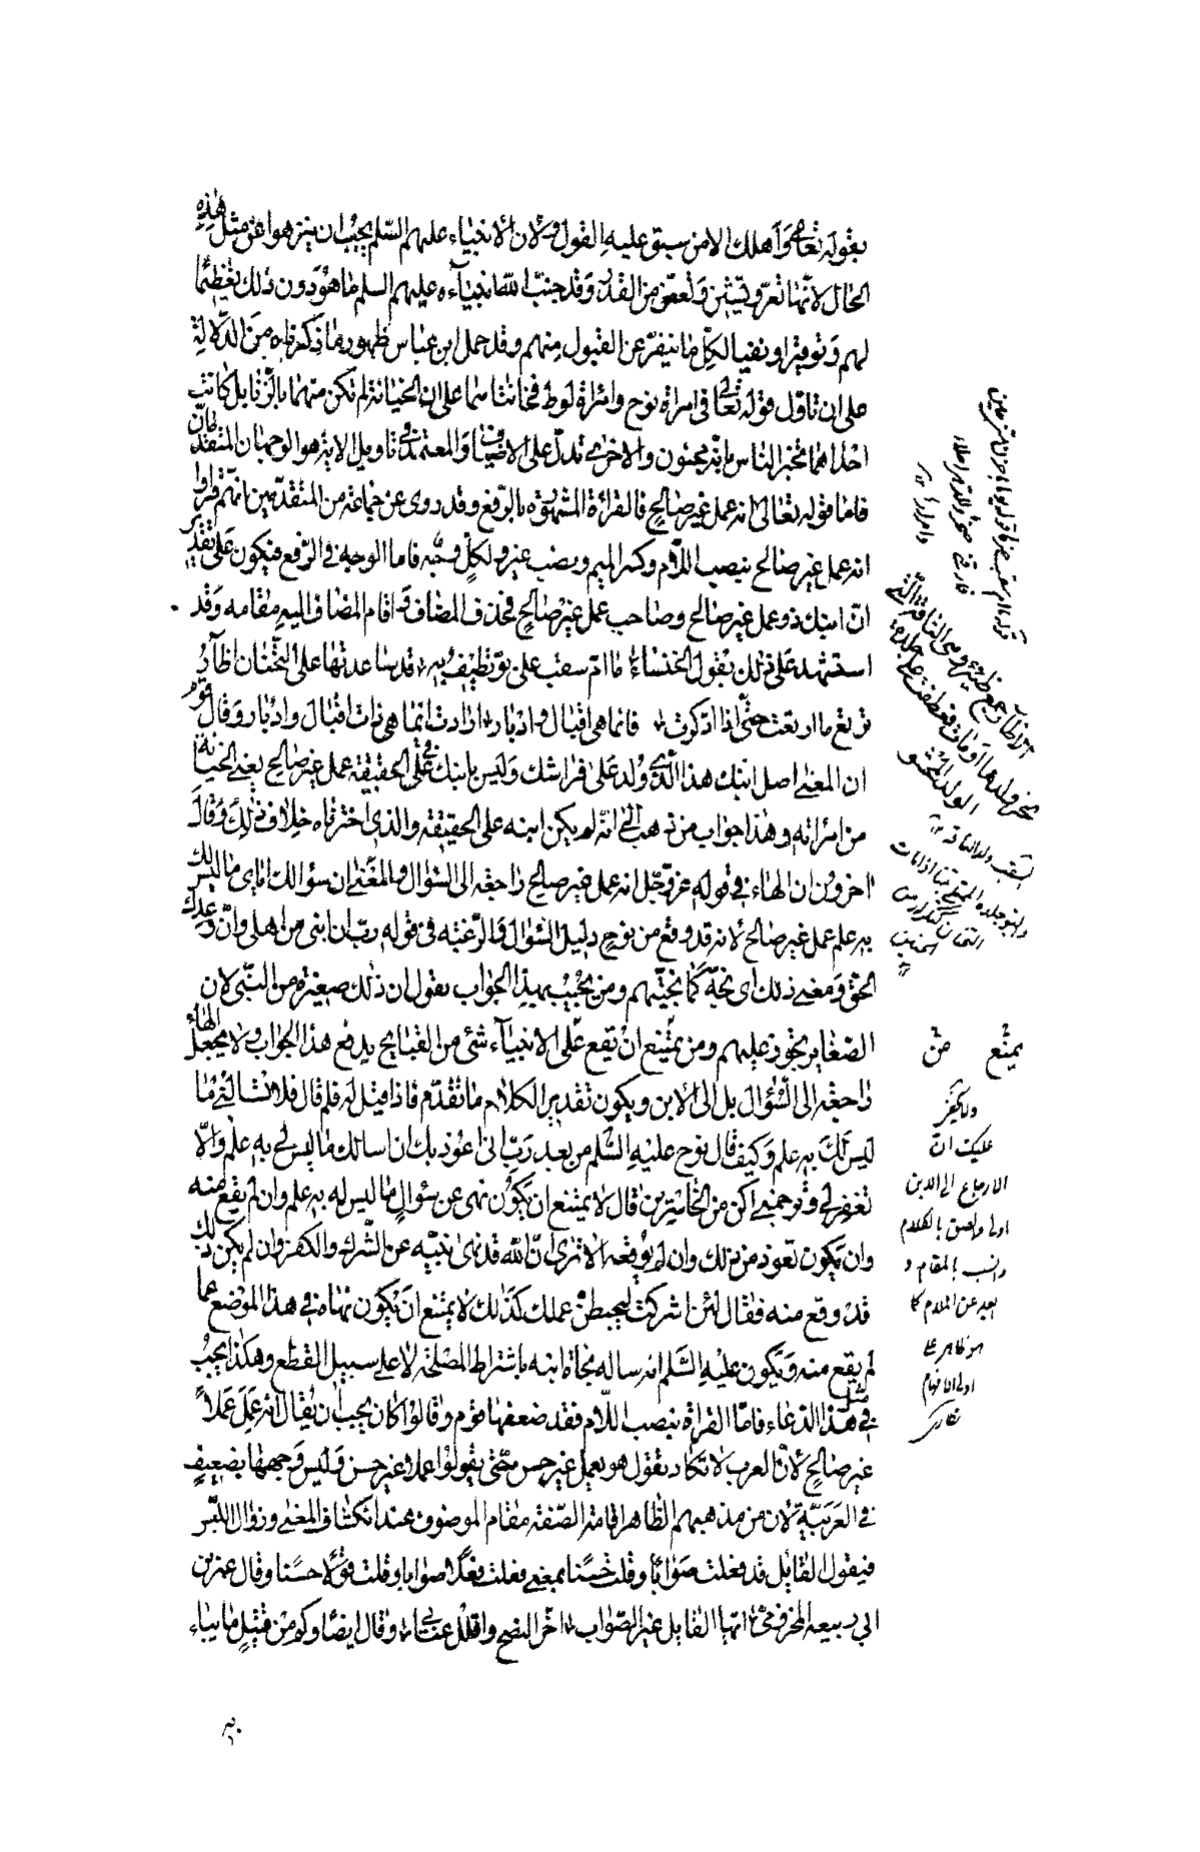 بقوله تعالى وأهلك الا من سبق عليه القول ولان الأنبياء عليهم السلم يجب ان ينزهوا عن مثل هذه
الحال لانها تعر وتشين و من القدر وقد جنب الله انبياءه عليهم السلم ما هو دون ذلك تعظيما
لهم وتوقيرا ونفيا لكل ما ينفر عن القبول منهم وقد حمل ابن عباس ظهور ما ذكرناه من الدلالة
على ان تاول قوله تعالى في امراة نوح وامراة لوط فخانتاهما على ان الخيانة لم تكن منهما بالزنا بل كانت
احداهما تخبر الناس بانه مجنون والاخرى تدل على الاضياف والمعتمد في تاويل الاية هو الوجهان المتقدمان
فاما قوله تعالى انه عمل غير صالح فالقراءة المشهورة بالرفع وقد روى عن جماعة من المتقدمين انهم قراوا
انه عمل غير صالح بنصب اللام وكسر الميم ونصب غير ولكل وجه فاما الوجه في الرفع فيكون على تقدير
ان ابنك ذو عمل غير صالح وصاحب عمل غير صالح فحذف المضاف واقام المضاف اليه مقامه وقد
استشهد على ذلك بقول الخنساء ما ام سقب على بو تطيف به قد ساعدتها على التحنان اظآر
ترتع ما رتعت حتى اذا ادكرت فانما هي اقبال وادبار ارادت انما هي ذات اقبال وادبار وقال قوم
ان المعنى اصل ابنك هذا الذي ولد على فراشك وليس بابنك على الحقيقة عمل غير صالح يعني الخيانة
من امراته وهذا جواب من ذهب الى انه لم يكن ابنه على الحقيقة والذي اخترناه خلاف ذلك وقال
اخرون ان الهاء في قوله عز وجل انه عمل غير صالح راجعة الى السؤال والمعنى ان سؤالك اياى ما ليس لك
به علم عمل غير صالح لانه قد وقع من نوح دليل السؤال والرغبة في قوله رب ان ابني من اهلى وان وعدك
الحق ومعنى ذلك اى نجه كما نجيتهم ومن يجيب بهذا الجواب يقول ان ذلك صغيرة من النبى لان
الصغاير تجوز عليهم ومن يمنع ان يقع على الانبياء شئ من القبايح يدفع هذا الجواب ولا يجعل الهاء
راجعة الى السؤال بل الى الابن ويكون تقدير الكلام ما تقدم فاذا قيل له فلم قال فلا تسالني ما
ليس لك به علم وكيف قال نوح عليه السلم من بعد رب انى اعوذ بك ان اسالك ما ليس لى به علم والا
تغفر لى وترحمنى اكن من الخاسرين قال لا يمتنع ان يكون نهى عن سؤال ما ليس له به علم وان لم يقع منه
وان يكون تعوذ من ذلك وان لم يوقعه الا ترى ان الله قد نهى نبيه عن الشرك والكفر وان لم يكن ذلك
قد وقع منه فقال لئن اشركت ليحبطن عملك كذلك لا يمتنع ان يكون نهاه في هذا الموضع عما
لم يقع منه ويكون عليه السلم انه ساله نجاة ابنه باشتراط المصلحة لا على سبيل القطع وهكذا يجب
في مثل هذا الدعاء فاما القراءة بنصب اللام فقد ضعفها قوم وقالوا كان يجب ان يقال انه عمل عملا
غير صالح لان العرب لا تكاد تقول هو يعمل غير حسن حتى يقولوا عملا غير حسن وليس وجهها بضعيف
في العربية لان من مذهبهم الظاهر اقامة الصفة مقام الموصوف عند انكشاف المعنى وزوال اللبس
فيقول القايل قد فعلت صوابا وقلت حسنا بمعنى فعلت فعلا صوابا وقلت قولا حسنا وقال عمر بن
ابي ربيعة المخزومى ايها القايل غير الصواب اخر النصح واقلل عتابي وقال ايضا وكم من قتيل ما يباء
يمتنع من
عليك ان
الارجاع الى الابن
اولى والصق بالكلام
وانسب بالمقام و
ابعد عن الملام كما
هو ظاهر على
اولى الافهام
به